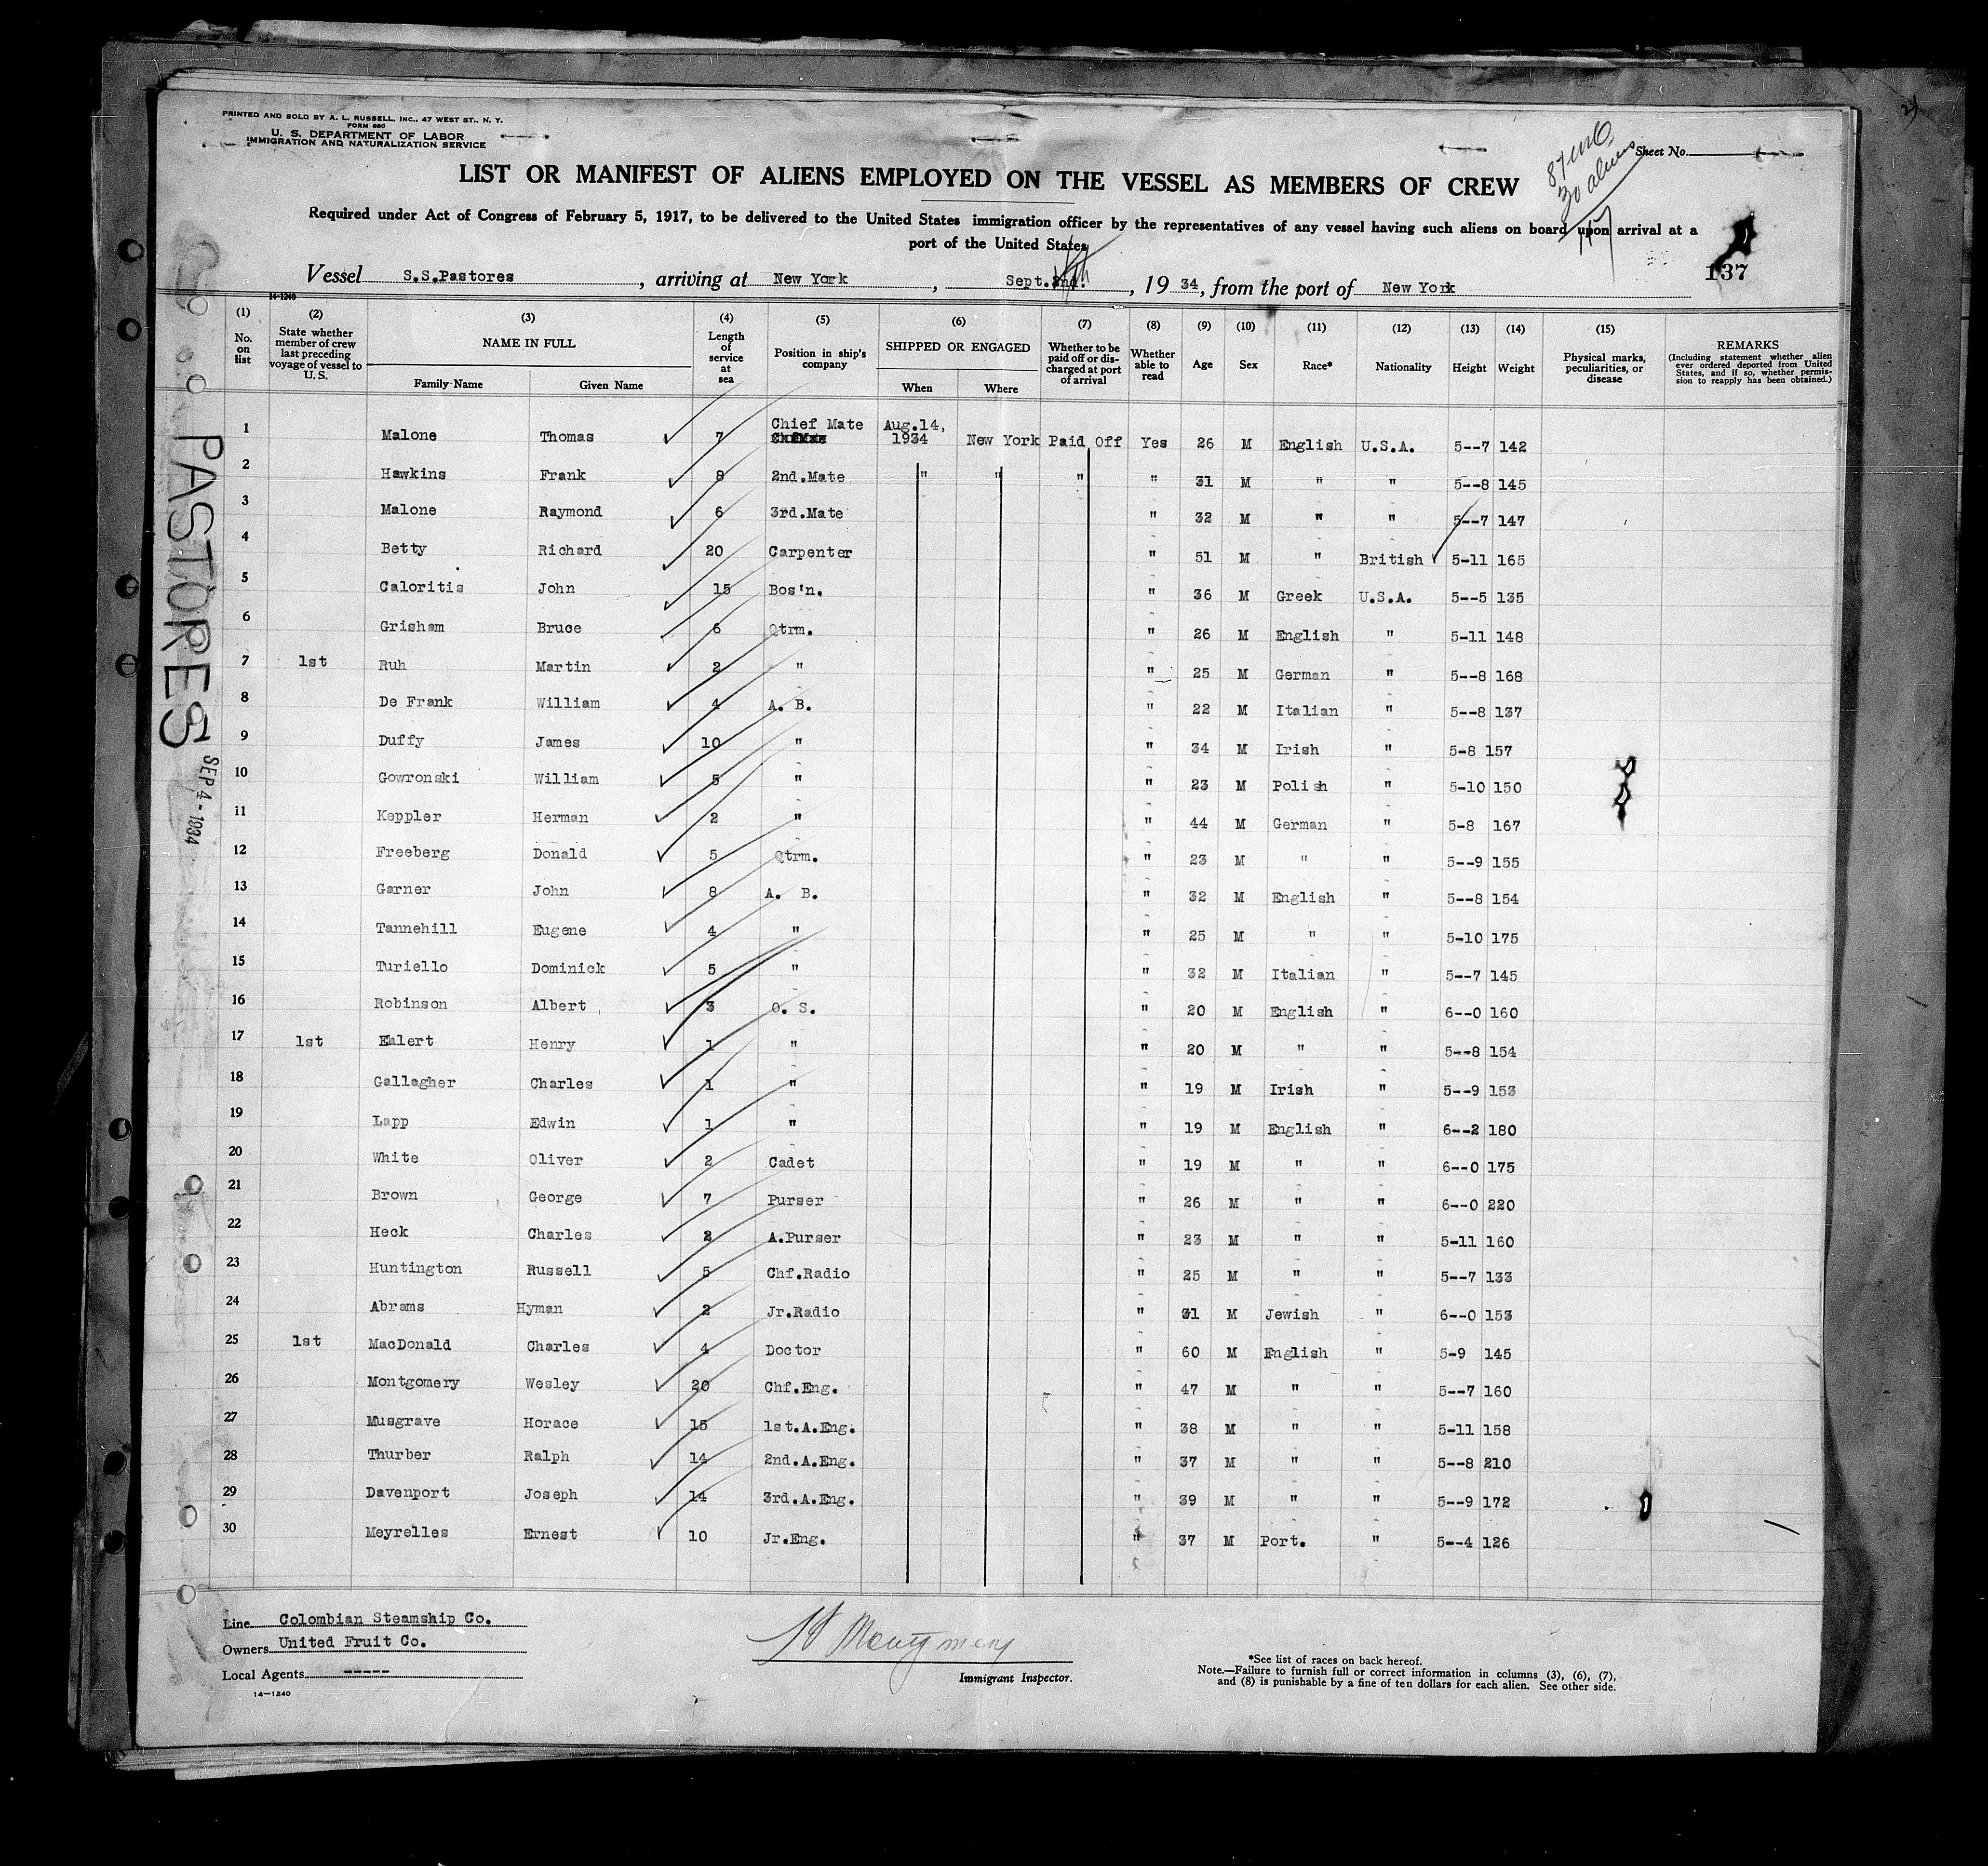 PRINTED AND SOLD BY A. L. RUSSELL, INC., 47 WEST ST., N. Y.
FORM 680
U. S. DEPARTMENT OF LABOR
IMMIGRATION AND NATURALIZATION SERVICE
Sheet No.
30 aliens
LIST OR MANIFEST OF ALIENS EMPLOYED ON THE VESSEL AS MEMBERS OF CREW
Required under Act of Congress of February 5, 1917, to be delivered to the United States immigration officer by the representatives of any vessel having such aliens on board upon arrival at a
port of the United States
137
Vessel S.S.Pastores, arriving at New York, Sept. 2nd., 1934, from the port of New York
14-1240
(1) No. on list (2) State whether member of crew last preceding voyage of vessel to U. S. (3) NAME IN FULL Family Name Given Name (4) Length of service at sea (5) Position in ship's company (6) SHIPPED OR ENGAGED When Where (7) Whether to be paid off or discharged at port of arrival (8) Whether able to read (9) Age (10) Sex (11) Race* (12) Nationality (13) Height (14) Weight (15) Physical marks, peculiarities, or disease REMARKS (Including statement whether alien ever ordered deported from United States, and if so, whether permission to reapply has been obtained.)
1 Malone Thomas 7 Chief Mate Aug.14, 1934 New York Paid Off Yes 26 M English U.S.A. 5--7 142
2 Hawkins Frank 8 2nd.Mate " " " " 31 M " " 5--8 145
3 Malone Raymond 6 3rd.Mate " 32 M " " 5--7 147
4 Betty Richard 20 Carpenter " 51 M " British 5-11 165
5 Caloritis John 15 Bos'n. " 36 M Greek U.S.A. 5--5 135
6 Grisham Bruce 6 Qtrm. " 26 M English " 5-11 148
7 1st Ruh Martin 2 " " 25 M German " 5--8 168
8 De Frank William 4 A. B. " 22 M Italian " 5--8 137
9 Duffy James 10 " " 34 M Irish " 5-8 157
10 Gowronski William 5 " " 23 M Polish " 5-10 150
11 Keppler Herman 2 " " 44 M German " 5-8 167
12 Freeberg Donald 5 Qtrm. " 23 M " " 5--9 155
13 Garner John 8 A. B. " 32 M English " 5--8 154
14 Tannehill Eugene 4 " " 25 M " " 5-10 175
15 Turiello Dominick 5 " " 32 M Italian " 5--7 145
16 Robinson Albert 3 O. S. " 20 M English " 6--0 160
17 1st Ehlert Henry 1 " " 20 M " " 5--8 154
18 Gallagher Charles 1 " " 19 M Irish " 5--9 153
19 Lapp Edwin 1 " " 19 M English " 6--2 180
20 White Oliver 2 Cadet " 19 M " " 6--0 175
21 Brown George 7 Purser " 26 M " " 6--0 220
22 Heck Charles 2 A.Purser " 23 M " " 5-11 160
23 Huntington Russell 5 Chf.Radio " 25 M " " 5--7 133
24 Abrams Hyman 2 Jr.Radio " 31 M Jewish " 6--0 153
25 1st MacDonald Charles 4 Doctor " 60 M English " 5-9 145
26 Montgomery Wesley 20 Chf.Eng. " 47 M " " 5--7 160
27 Musgrave Horace 15 1st.A.Eng. " 38 M " " 5-11 158
28 Thurber Ralph 14 2nd.A.Eng. " 37 M " " 5--8 210
29 Davenport Joseph 14 3rd.A.Eng. " 39 M " " 5--9 172
30 Meyrelles Ernest 10 Jr.Eng. " 37 M Port. " 5--4 126
PASTORES
SEP 4 - 1934
Line Colombian Steamship Co.
Owners United Fruit Co.
Local Agents -----
14-1240
Montgomery
Immigrant Inspector.
*See list of races on back hereof.
Note.—Failure to furnish full or correct information in columns (3), (6), (7),
and (8) is punishable by a fine of ten dollars for each alien. See other side.